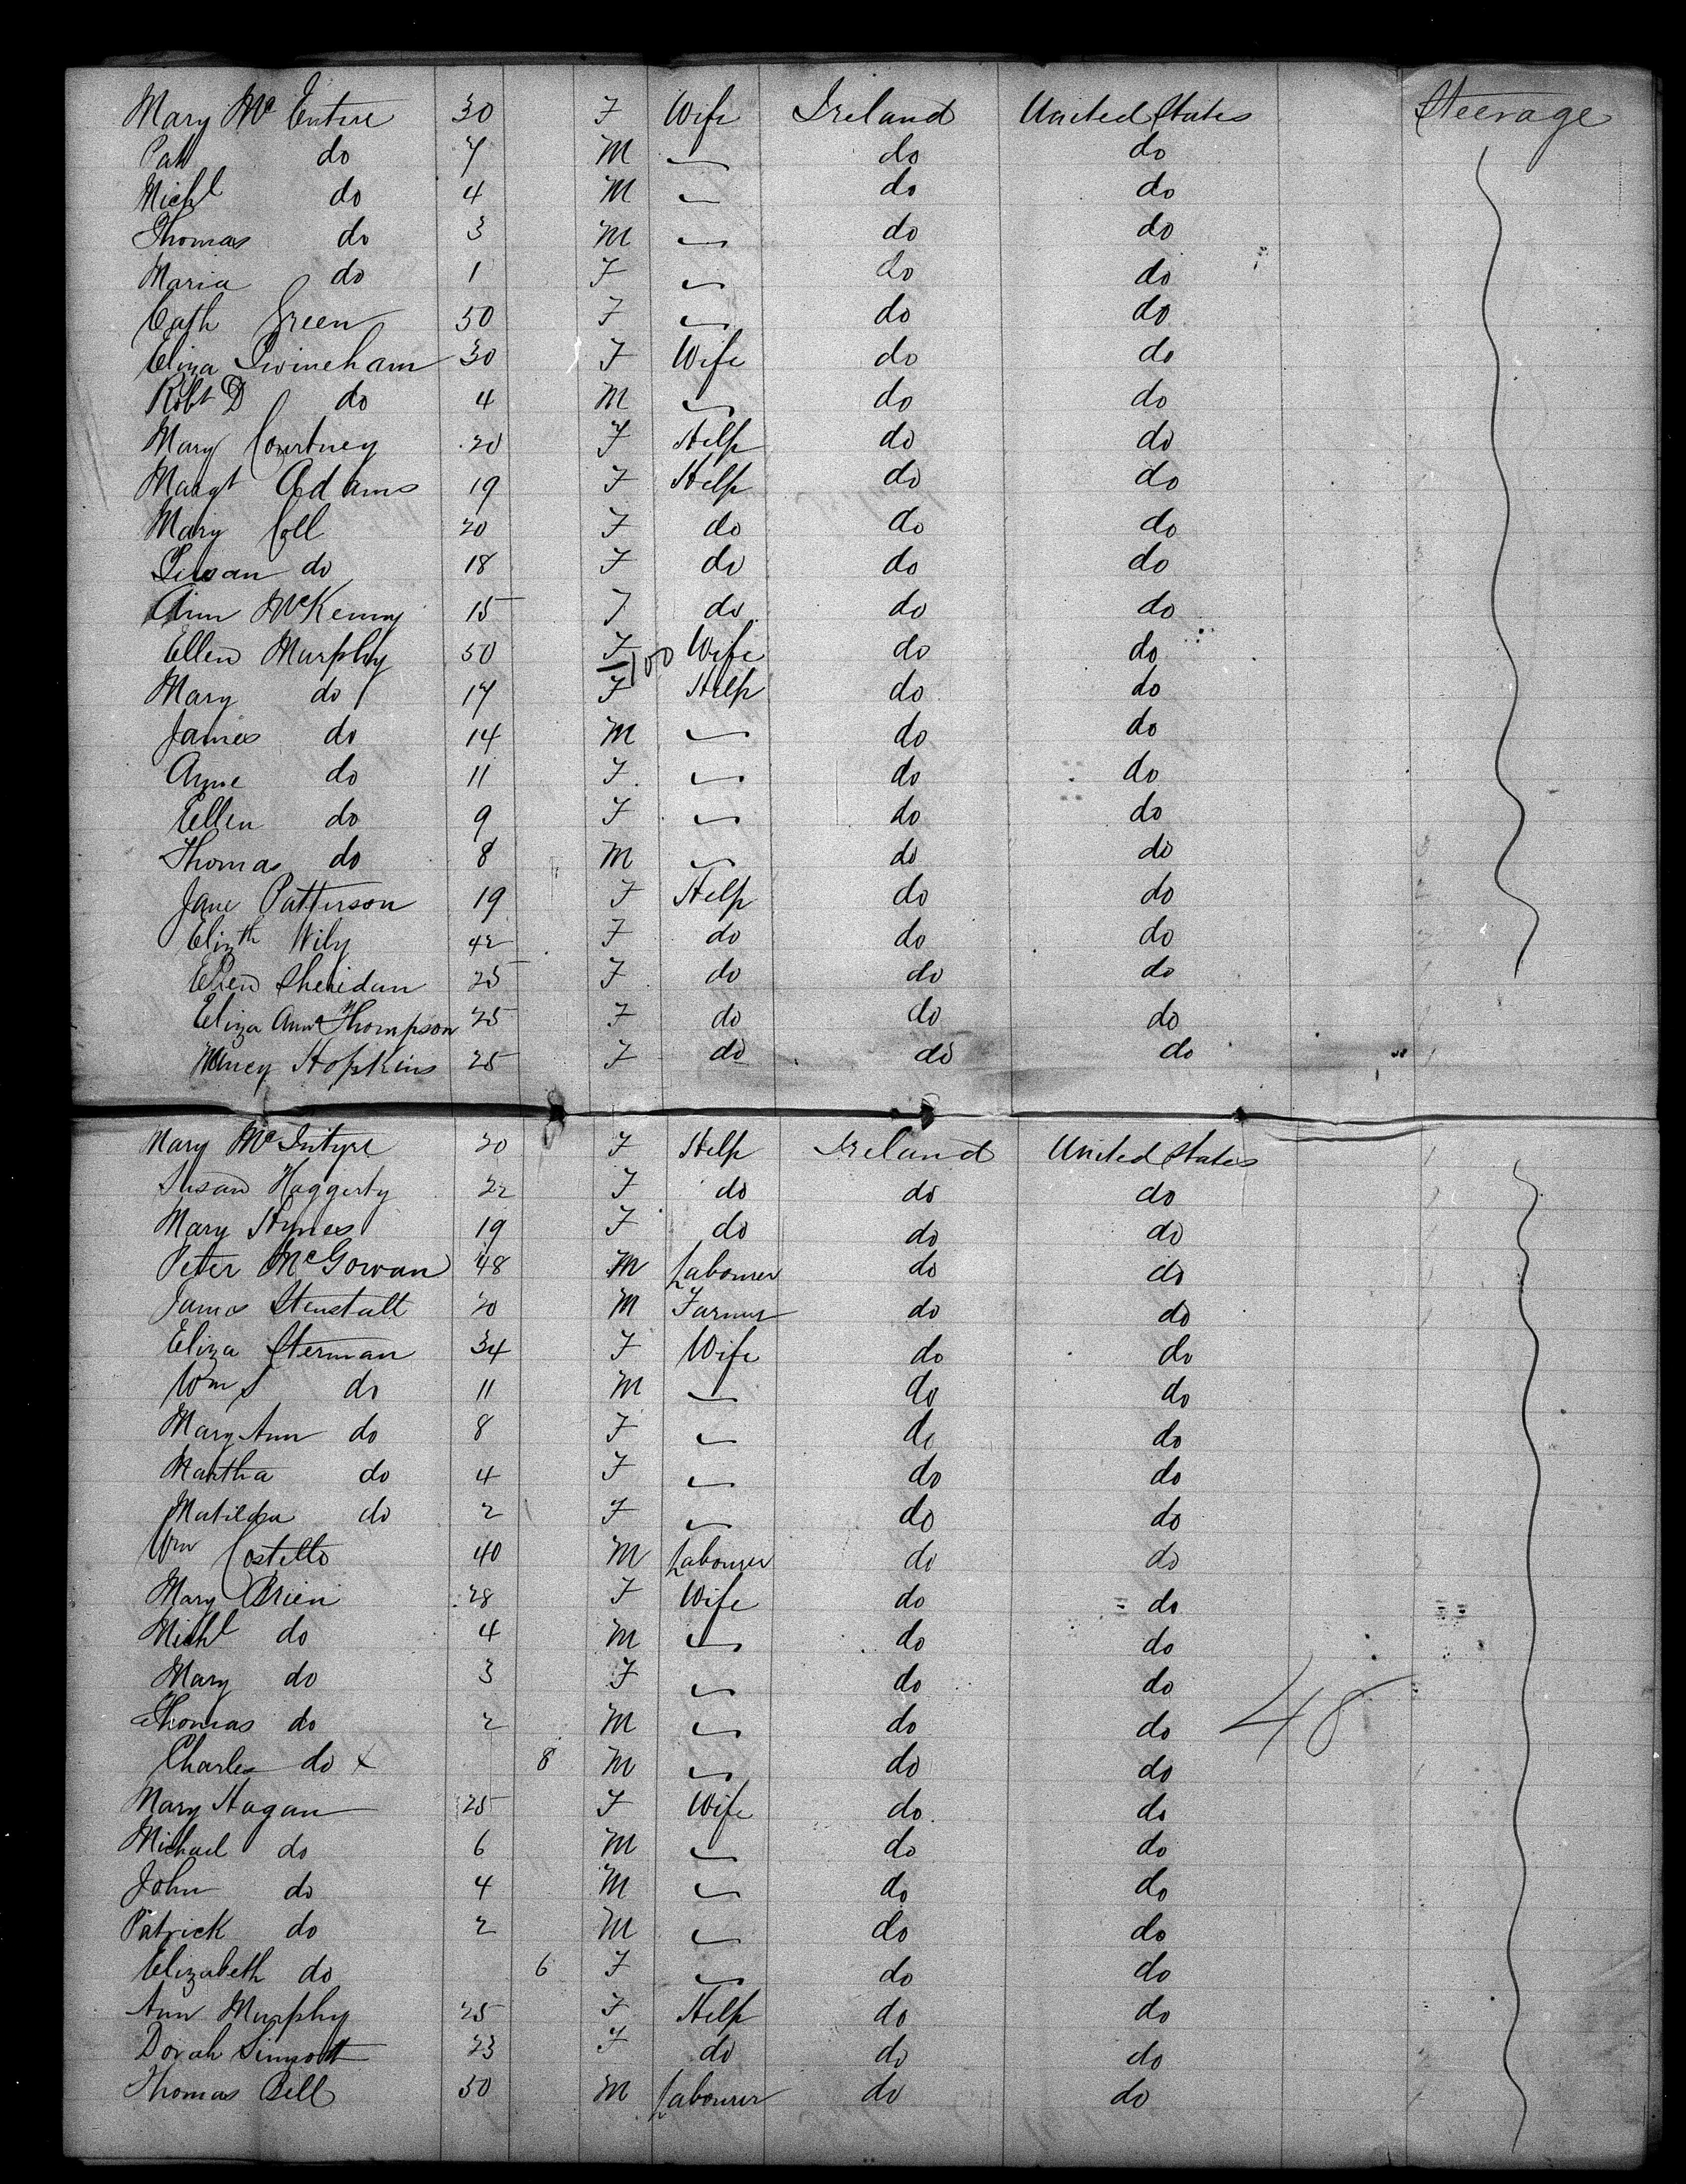 Mary McEntire 30 F Wife Ireland United States Steerage
Pat do 7 M do do
Michl do 4 M do do
Thomas do 3 M do do
Maria do 1 F do do
Cath Green 50 F do do
Eliza 30 F Wife do do
Robt D do 4 M do do
Mary Courtney 20 F Help do do
Margt Adams 19 F Help do do
Mary Coll 20 F do do do
Susan do 18 F do do do
Ann McKenny 15 F do do do
Ellen Murphy 50 F Wife do do
100
Mary do 17 F Help do do
James do 14 M do do
Anne do 11 F do do
Ellen do 9 F do do
Thomas do 8 M do do
Jane Patterson 19 F Help do do
Elizth Wily 42 F do do do
Ellen Sheridan 25 F do do do
Eliza Ann Thompson 25 F do do do
Nancy Hopkins 25 F do do do
Mary McIntyre 20 F Help Ireland United States
Susan Haggerty 22 F do do do
Mary Hynes 19 F do do do
Peter McGowan 48 M Labourer do do
James 20 M Farmer do do
Eliza Sterman 34 F Wife do do
Wm S do 11 M do do
Mary Ann do 8 F do do
Martha do 4 F do do
Matilda do 2 F do do
Wm Costello 40 M Labourer do do
Mary Brien 28 F Wife do do
Michl do 4 M do do
Mary do 3 F do do
Thomas do 2 M do do 48
Charles do x 8 M do do
Mary Hagan 25 F Wife do do
Michael do 6 M do do
John do 4 M do do
Patrick do 2 M do do
Elizabeth do 6 F do do
Ann Murphy 25 F Help do do
Dorah Sinnott 23 F do do do
Thomas Bell 50 M Labourer do do